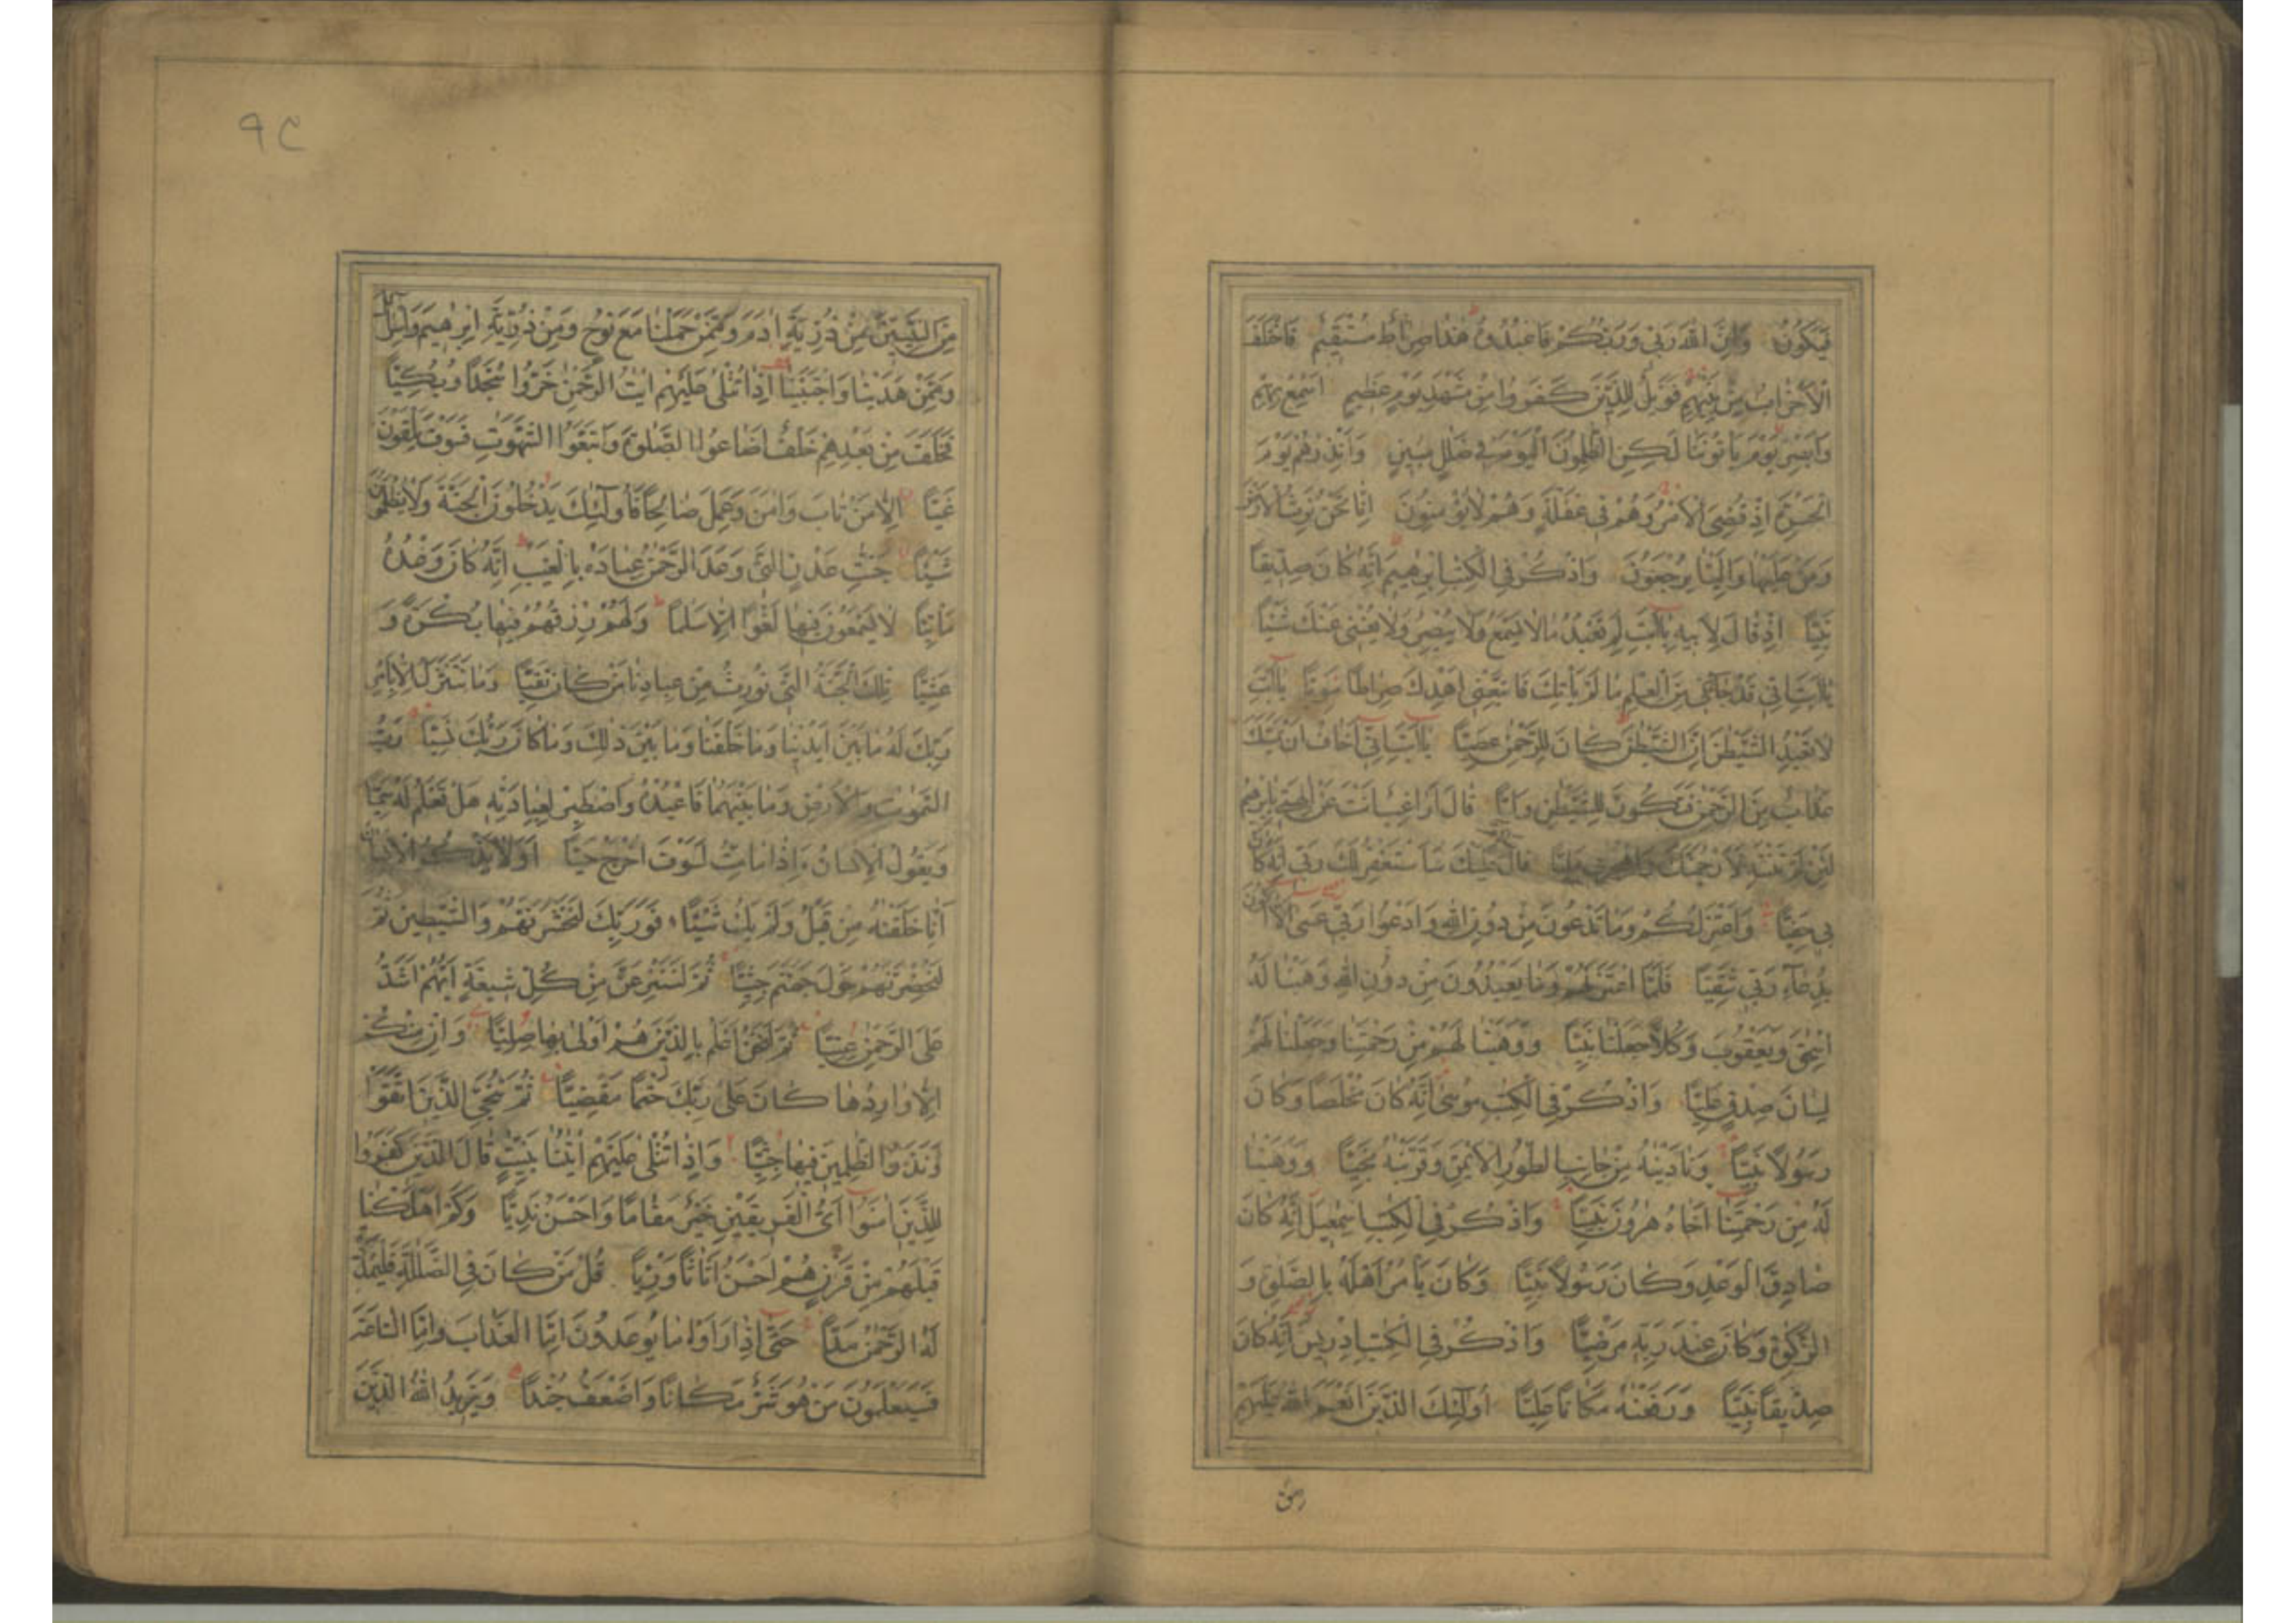 فَيَكُونُ وَاِنَّ اللّٰهَ رَبِّي وَرَبُّكُمْ فَاعْبُدُوهُ هٰذَا صِرَاطٌ مُسْتَقِيمٌ فَاخْتَلَفَ
الْاَحْزَابُ مِنْ بَيْنِهِمْ فَوَيْلٌ لِلَّذِينَ كَفَرُوا مِنْ مَشْهَدِ يَوْمٍ عَظِيمٍ اَسْمِعْ بِهِمْ
وَاَبْصِرْ يَوْمَ يَاْتُونَنَا لٰكِنِ الظّٰلِمُونَ الْيَوْمَ فِي ضَلٰلٍ مُبِينٍ وَاَنْذِرْهُمْ يَوْمَ
الْحَسْرَةِ اِذْ قُضِيَ الْاَمْرُ وَهُمْ فِي غَفْلَةٍ وَهُمْ لَا يُؤْمِنُونَ اِنَّا نَحْنُ نَرِثُ الْاَرْضَ
وَمَنْ عَلَيْهَا وَاِلَيْنَا يُرْجَعُونَ وَاذْكُرْ فِي الْكِتٰبِ اِبْرٰهِيمَ اِنَّهُ كَانَ صِدِّيقًا
نَبِيًّا اِذْ قَالَ لِاَبِيهِ يٰٓاَبَتِ لِمَ تَعْبُدُ مَا لَا يَسْمَعُ وَلَا يُبْصِرُ وَلَا يُغْنِي عَنْكَ شَيْئًا
يٰٓاَبَتِ اِنِّي قَدْ جَاءَنِي مِنَ الْعِلْمِ مَا لَمْ يَاْتِكَ فَاتَّبِعْنِي اَهْدِكَ صِرَاطًا سَوِيًّا يٰٓاَبَتِ
لَا تَعْبُدِ الشَّيْطٰنَ اِنَّ الشَّيْطٰنَ كَانَ لِلرَّحْمٰنِ عَصِيًّا يٰٓاَبَتِ اِنِّي اَخَافُ اَنْ يَمَسَّكَ
عَذَابٌ مِنَ الرَّحْمٰنِ فَتَكُونَ لِلشَّيْطٰنِ وَلِيًّا قَالَ اَرَاغِبٌ اَنْتَ عَنْ اٰلِهَتِي يٰٓاِبْرٰهِيمُ
لَئِنْ لَمْ تَنْتَهِ لَاَرْجُمَنَّكَ وَاهْجُرْنِي مَلِيًّا قَالَ عَلَيْكَ سَاَسْتَغْفِرُ لَكَ رَبِّي اِنَّهُ كَانَ
بِي حَفِيًّا وَاَعْتَزِلُكُمْ وَمَا تَدْعُونَ مِنْ دُونِ اللّٰهِ وَاَدْعُوا رَبِّي عَسٰى اَلَّا اَكُونَ
بِدُعَاءِ رَبِّي شَقِيًّا فَلَمَّا اعْتَزَلَهُمْ وَمَا يَعْبُدُونَ مِنْ دُونِ اللّٰهِ وَهَبْنَا لَهُ
اِسْحٰقَ وَيَعْقُوبَ وَكُلًّا جَعَلْنَا نَبِيًّا وَوَهَبْنَا لَهُمْ مِنْ رَحْمَتِنَا وَجَعَلْنَا لَهُمْ
لِسَانَ صِدْقٍ عَلِيًّا وَاذْكُرْ فِي الْكِتٰبِ مُوسٰى اِنَّهُ كَانَ مُخْلَصًا وَكَانَ
رَسُولًا نَبِيًّا وَنَادَيْنٰهُ مِنْ جَانِبِ الطُّورِ الْاَيْمَنِ وَقَرَّبْنٰهُ نَجِيًّا وَوَهَبْنَا
لَهُ مِنْ رَحْمَتِنَا اَخَاهُ هٰرُونَ نَبِيًّا وَاذْكُرْ فِي الْكِتٰبِ اِسْمٰعِيلَ اِنَّهُ كَانَ
صَادِقَ الْوَعْدِ وَكَانَ رَسُولًا نَبِيًّا وَكَانَ يَاْمُرُ اَهْلَهُ بِالصَّلٰوةِ وَ
الزَّكٰوةِ وَكَانَ عِنْدَ رَبِّهِ مَرْضِيًّا وَاذْكُرْ فِي الْكِتٰبِ اِدْرِيسَ اِنَّهُ كَانَ
صِدِّيقًا نَبِيًّا وَرَفَعْنٰهُ مَكَانًا عَلِيًّا اُولٰٓئِكَ الَّذِينَ اَنْعَمَ اللّٰهُ عَلَيْهِمْ
٩٢
مِنَ النَّبِيِّنَ مِنْ ذُرِّيَّةِ اٰدَمَ وَمِمَّنْ حَمَلْنَا مَعَ نُوحٍ وَمِنْ ذُرِّيَّةِ اِبْرٰهِيمَ وَاِسْرَائِلَ
وَمِمَّنْ هَدَيْنَا وَاجْتَبَيْنَا اِذَا تُتْلٰى عَلَيْهِمْ اٰيٰتُ الرَّحْمٰنِ خَرُّوا سُجَّدًا وَبُكِيًّا
فَخَلَفَ مِنْ بَعْدِهِمْ خَلْفٌ اَضَاعُوا الصَّلٰوةَ وَاتَّبَعُوا الشَّهَوٰتِ فَسَوْفَ يَلْقَوْنَ
غَيًّا اِلَّا مَنْ تَابَ وَاٰمَنَ وَعَمِلَ صَالِحًا فَاُولٰٓئِكَ يَدْخُلُونَ الْجَنَّةَ وَلَا يُظْلَمُونَ
شَيْئًا جَنّٰتِ عَدْنٍ الَّتِي وَعَدَ الرَّحْمٰنُ عِبَادَهُ بِالْغَيْبِ اِنَّهُ كَانَ وَعْدُهُ
مَاْتِيًّا لَا يَسْمَعُونَ فِيهَا لَغْوًا اِلَّا سَلٰمًا وَلَهُمْ رِزْقُهُمْ فِيهَا بُكْرَةً وَ
عَشِيًّا تِلْكَ الْجَنَّةُ الَّتِي نُورِثُ مِنْ عِبَادِنَا مَنْ كَانَ تَقِيًّا وَمَا نَتَنَزَّلُ اِلَّا بِاَمْرِ
رَبِّكَ لَهُ مَا بَيْنَ اَيْدِينَا وَمَا خَلْفَنَا وَمَا بَيْنَ ذٰلِكَ وَمَا كَانَ رَبُّكَ نَسِيًّا رَبُّ
السَّمٰوٰتِ وَالْاَرْضِ وَمَا بَيْنَهُمَا فَاعْبُدْهُ وَاصْطَبِرْ لِعِبَادَتِهِ هَلْ تَعْلَمُ لَهُ سَمِيًّا
وَيَقُولُ الْاِنْسَانُ ءَاِذَا مَا مِتُّ لَسَوْفَ اُخْرَجُ حَيًّا اَوَلَا يَذْكُرُ الْاِنْسَانُ
اَنَّا خَلَقْنٰهُ مِنْ قَبْلُ وَلَمْ يَكُ شَيْئًا فَوَرَبِّكَ لَنَحْشُرَنَّهُمْ وَالشَّيٰطِينَ ثُمَّ
لَنُحْضِرَنَّهُمْ حَوْلَ جَهَنَّمَ جِثِيًّا ثُمَّ لَنَنْزِعَنَّ مِنْ كُلِّ شِيعَةٍ اَيُّهُمْ اَشَدُّ
عَلَى الرَّحْمٰنِ عِتِيًّا ثُمَّ لَنَحْنُ اَعْلَمُ بِالَّذِينَ هُمْ اَوْلٰى بِهَا صِلِيًّا وَاِنْ مِنْكُمْ
اِلَّا وَارِدُهَا كَانَ عَلٰى رَبِّكَ حَتْمًا مَقْضِيًّا ثُمَّ نُنَجِّي الَّذِينَ اتَّقَوْا
وَنَذَرُ الظّٰلِمِينَ فِيهَا جِثِيًّا وَاِذَا تُتْلٰى عَلَيْهِمْ اٰيٰتُنَا بَيِّنٰتٍ قَالَ الَّذِينَ كَفَرُوا
لِلَّذِينَ اٰمَنُوا اَيُّ الْفَرِيقَيْنِ خَيْرٌ مَقَامًا وَاَحْسَنُ نَدِيًّا وَكَمْ اَهْلَكْنَا
قَبْلَهُمْ مِنْ قَرْنٍ هُمْ اَحْسَنُ اَثَاثًا وَرِءْيًا قُلْ مَنْ كَانَ فِي الضَّلٰلَةِ فَلْيَمْدُدْ
لَهُ الرَّحْمٰنُ مَدًّا حَتّٰى اِذَا رَاَوْا مَا يُوعَدُونَ اِمَّا الْعَذَابَ وَاِمَّا السَّاعَةَ
فَسَيَعْلَمُونَ مَنْ هُوَ شَرٌّ مَكَانًا وَاَضْعَفُ جُنْدًا وَيَزِيدُ اللّٰهُ الَّذِينَ